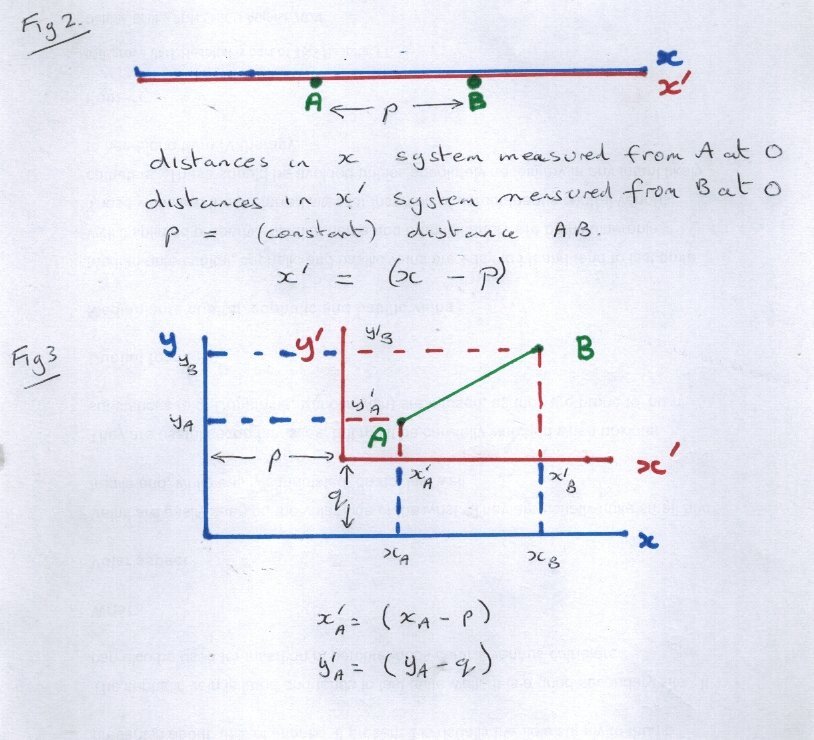 Fig 2.
x
x'
A ← p → B
distances in x system measured from A at 0
distances in x' system measured from B at 0
p = (constant) distance AB.
x' = (x - p)
Fig 3
y y' y'B B
yB
yA y'A
A
← p → x'
q x'A x'B
x
xA xB
x'A = (xA - p)
y'A = (yA - q)